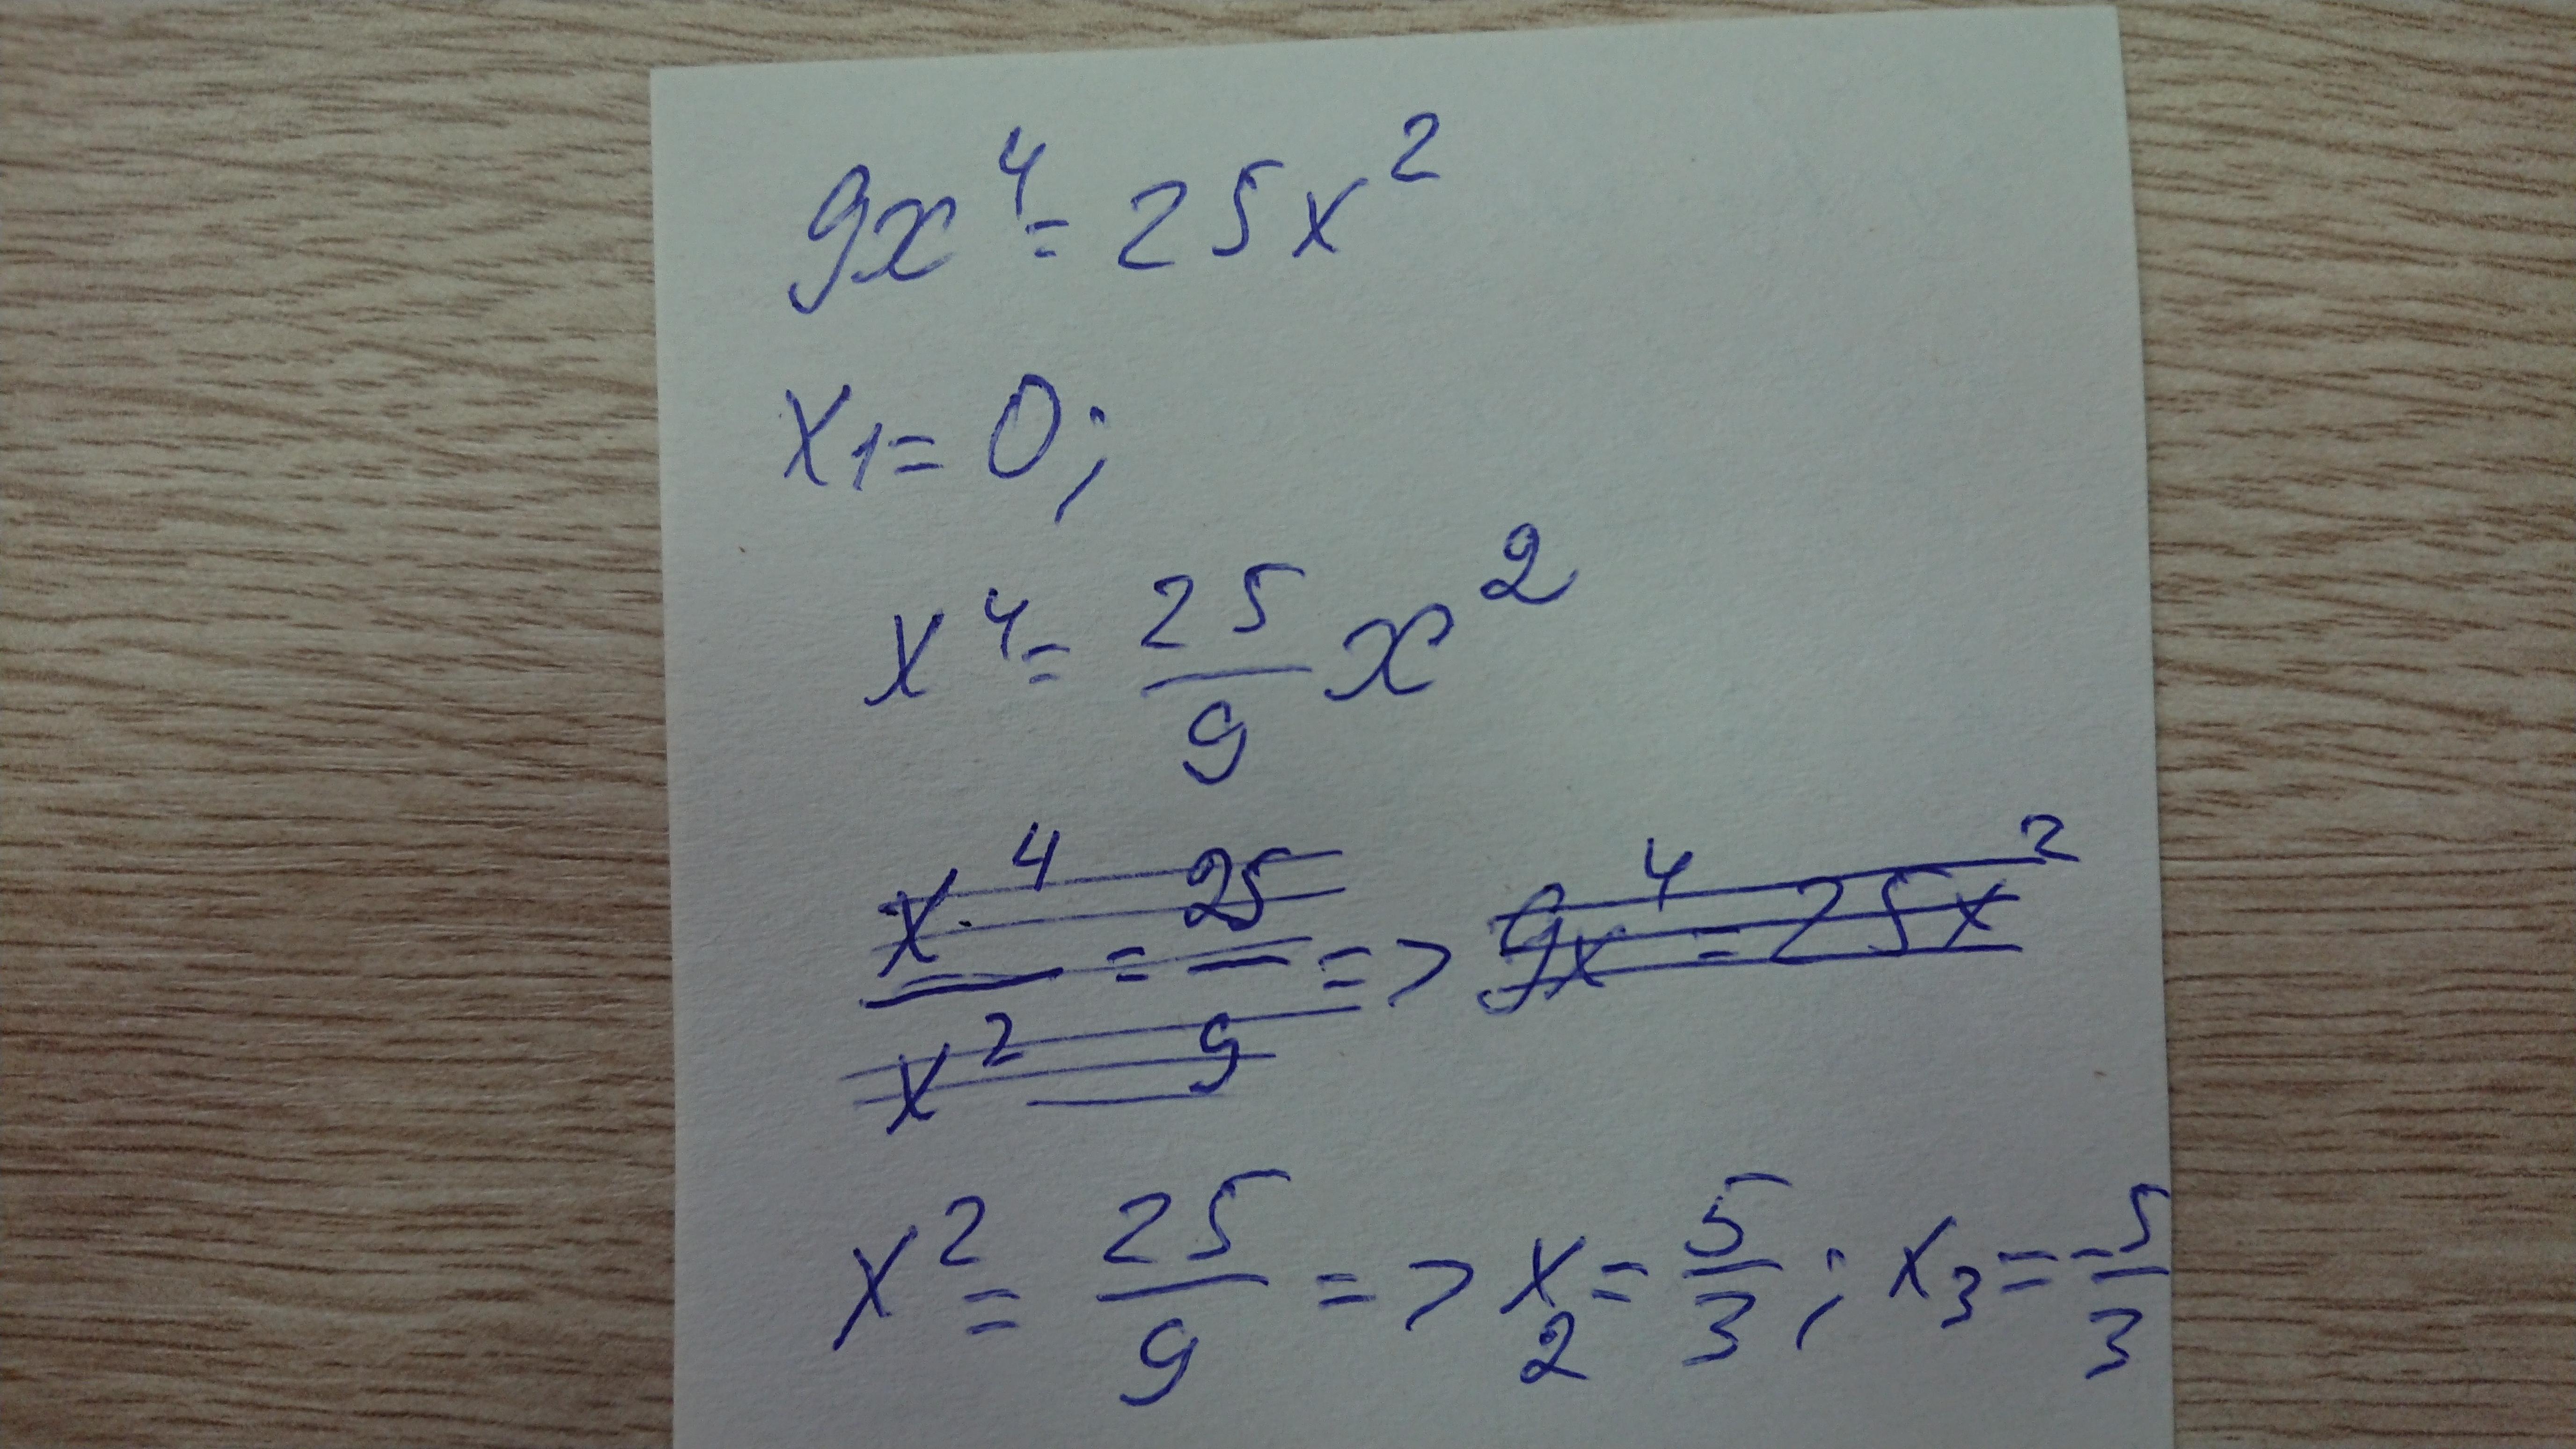 9x⁴ = 25x²
x₁ = 0;
x⁴ = 25/9 x²
x⁴/x² = 25/9 => 9x⁴ = 25x²
x² = 25/9 => x₂ = 5/3; x₃ = -5/3